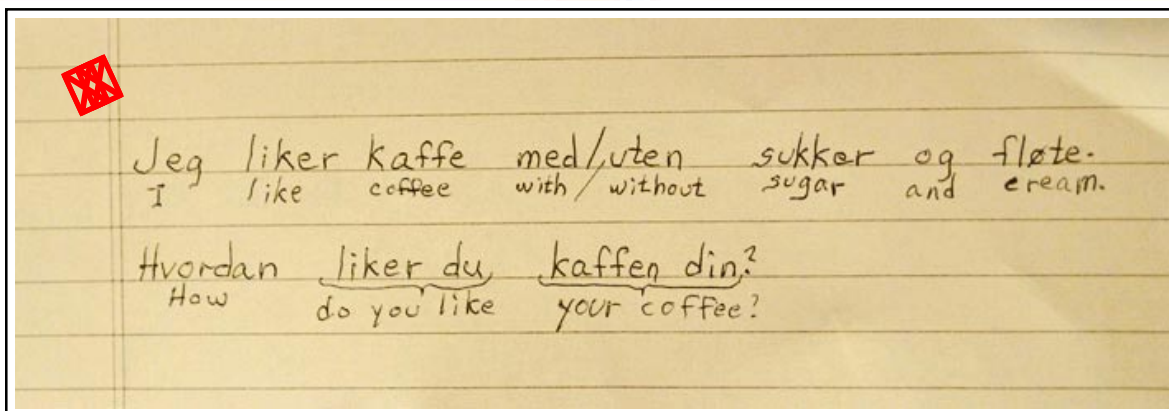 Jeg liker kaffe med/uten sukker og fløte.
I like coffee with/without sugar and cream.
Hvordan liker du kaffen din?
How do you like your coffee?